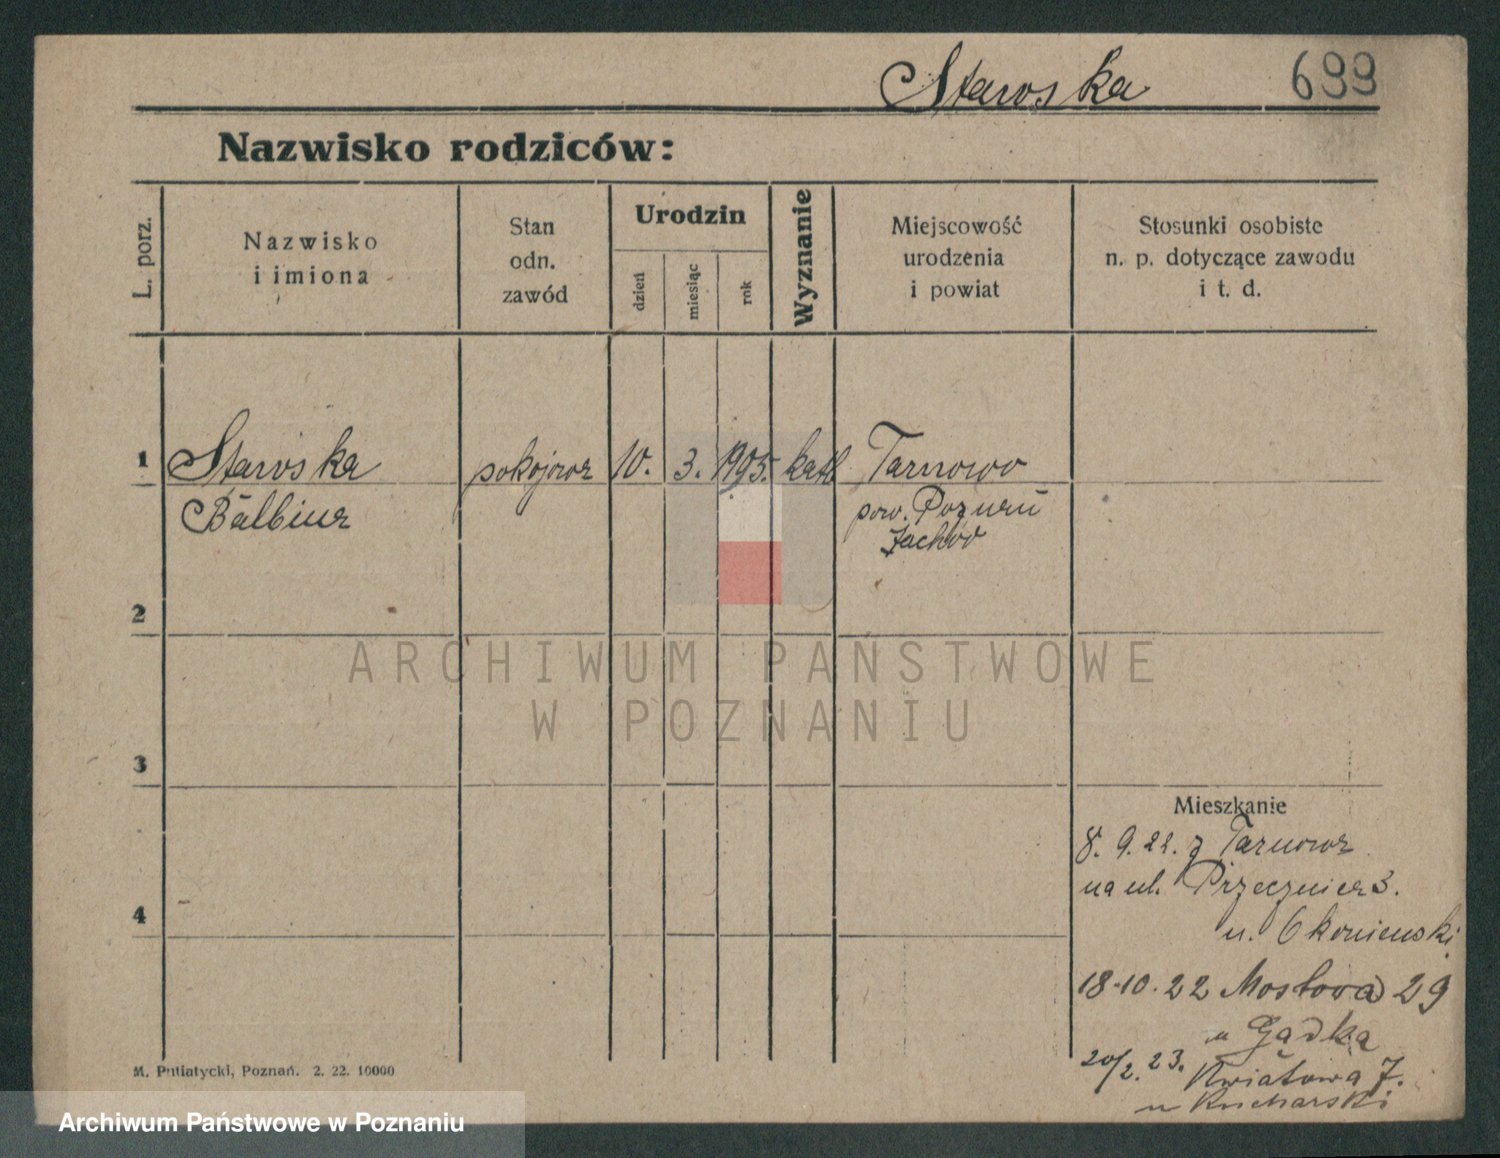 Staroska 699
Nazwisko rodziców:
L. porz.
Nazwisko
i imiona
Stan
odn.
zawód
Urodzin
dzień
miesiąc
rok
Wyznanie
Miejscowość
urodzenia
i powiat
Stosunki osobiste
n. p. dotyczące zawodu
i t. d.
1 Staroska pokojowa 10. 3. 1905. kath Tarnowo
Balbina pow. Poznań
Zachód
2
3
4
Mieszkanie
8. 9. 22. z Tarnowa
na ul. Przecznica 3.
u. Okoniewski
18.10.22 Mostowa 29
u Gadka
20/2.23. Kwiatowa 7.
u Kucharski
M. Putiatycki, Poznań. 2. 22. 10000
ARCHIWUM PAŃSTWOWE
W POZNANIU
Archiwum Państwowe w Poznaniu